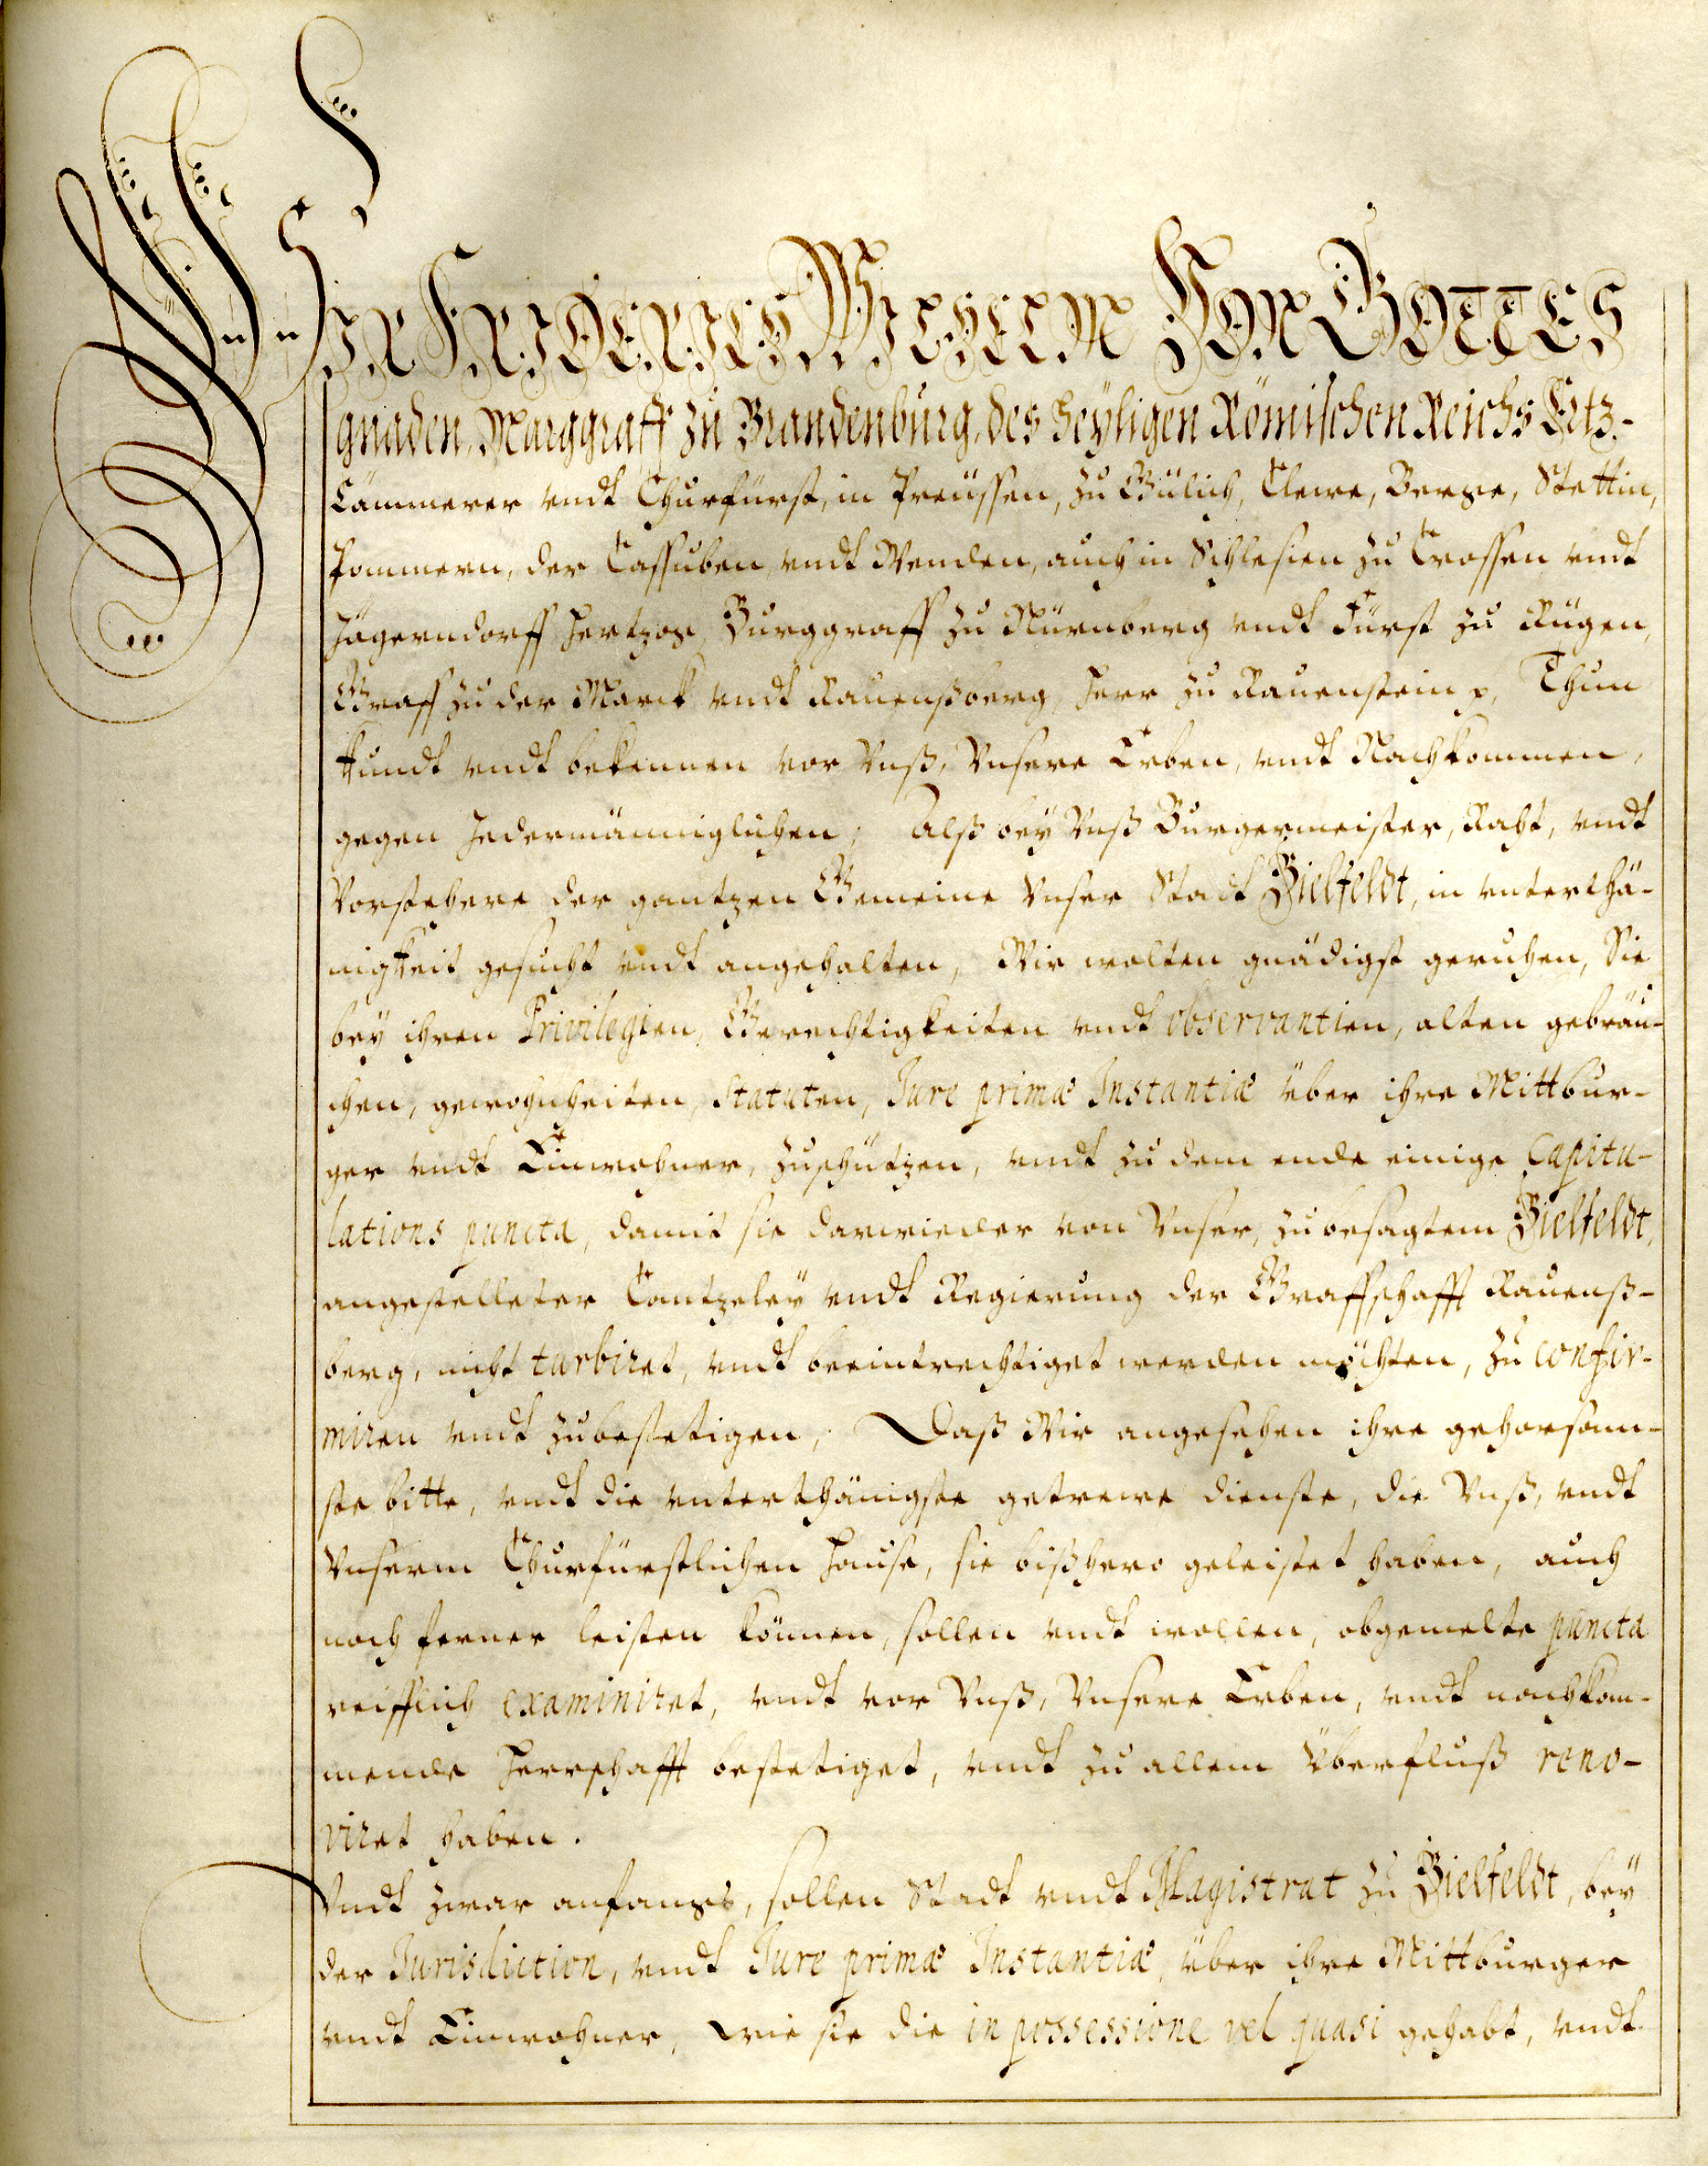 WIR FRIDERICH WILHELM VON GOTTES
gnaden, Marggraff zu Brandenburg, des heyligen Römischen Reichs Ertz-
Cämmerer vndt Churfürst, in Preüssen, zu Gülich, Cleve, Berge, Stettin,
Pommern, der Cassuben vndt Wenden, auch in Schlesien zu Crossen vndt
Jägerndorff Hertzog, Burggraff zu Nürnberg vndt Fürst zu Rügen,
Graff zu der Marck vndt Rauenßberg, Herr zu Rauenstein p, Thun
kundt vndt bekennen vor Vnß, Vnsere Erben, vndt Nachkommen,
gegen Jedermänniglichen; Alß bey Vnß Burgermeister, Raht, vndt
Vorstehere der gantzen Gemeine Vnser Stadt Bielfeldt, in unterthä-
nigkeit gesucht vndt angehalten, Wir wolten gnädigst geruhen, Sie
bey ihren Privilegien, Gerechtigkeiten vndt observantien, alten gebräu-
chen, gewohnheiten, Statuten, Jure primæ Instantiæ über ihre Mittbur-
ger vndt Einwohner, zuschützen, vndt zu dem ende einige Capitu-
lations puncta, damit sie darwieder von Vnser, zu besagtem Bielfeldt,
angestelleter Cantzeley vndt Regierung der Graffschafft Rauenß-
berg, nicht turbiret, vndt beeintrechtiget werden möchten, zu confir-
miren vndt zubestetigen, Daß Wir angesehen ihre gehorsam-
ste bitte, vndt die unterthänigste getrewe dienste, die Vnß, vndt
Vnserm Churfürstlichen Hause, sie bißhero geleistet haben, auch
noch ferner leisten können, sollen vndt wollen, obgemelte puncta
reifflich examiniret, vndt vor Vnß, Vnsere Erben, vndt nachkom-
mende Herrschafft bestetiget, vndt zu allem Überfluß reno-
viret haben.
Vndt zwar anfangs, sollen Stadt vndt Magistrat zu Bielfeldt, bey
der Jurisdiction, vndt Jure primæ Instantiæ, über ihre Mittburger
vndt Einwohner, wie sie die in possessione vel quasi gehabt, vndt